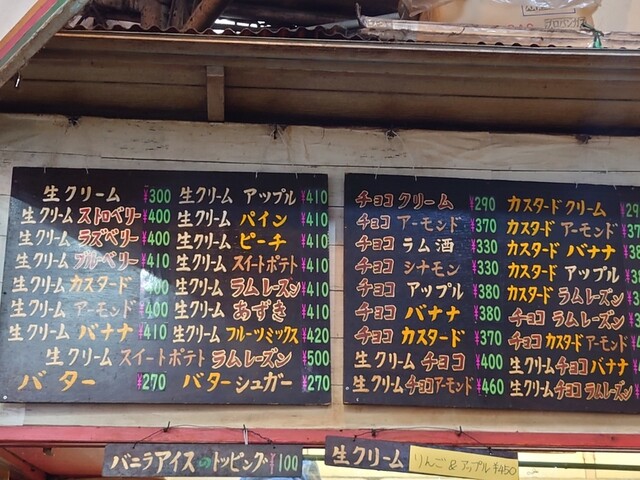 生クリーム ¥300
生クリームストロベリー ¥400
生クリームラズベリー ¥400
生クリームブルーベリー ¥410
生クリームカスタード
生クリームアーモンド ¥400
生クリーム バナナ ¥410
生クリーム スイートポテト ラムレーズン ¥500
バター ¥270
生クリーム アップル ¥410
生クリーム パイン ¥410
生クリーム ピーチ ¥410
生クリーム スイートポテト ¥410
生クリーム ラムレーズン ¥410
生クリーム あずき ¥410
生クリーム フルーツミックス ¥420
バターシュガー ¥270
チョコ クリーム ¥290
チョコ アーモンド ¥370
チョコ ラム酒 ¥330
チョコ シナモン ¥330
チョコ アップル ¥380
チョコ バナナ ¥380
チョコ カスタード ¥370
生クリーム チョコ ¥400
生クリーム チョコアーモンド ¥460
カスタードクリーム
カスタード アーモンド
カスタード バナナ
カスタード アップル
カスタード ラムレーズン
チョコ ラムレーズン
チョコ カスタード アーモンド
生クリームチョコ バナナ
生クリームチョコ ラムレーズン
バニラアイスのトッピング ¥100
生クリーム りんご&アップル ¥450